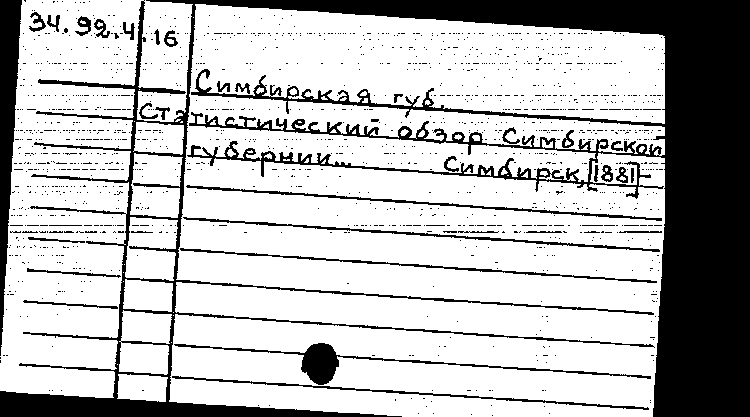 34.92.4.16
Симбирская губ.
Статистический обзор Симбирской
губернии... Симбирск, [1881]-